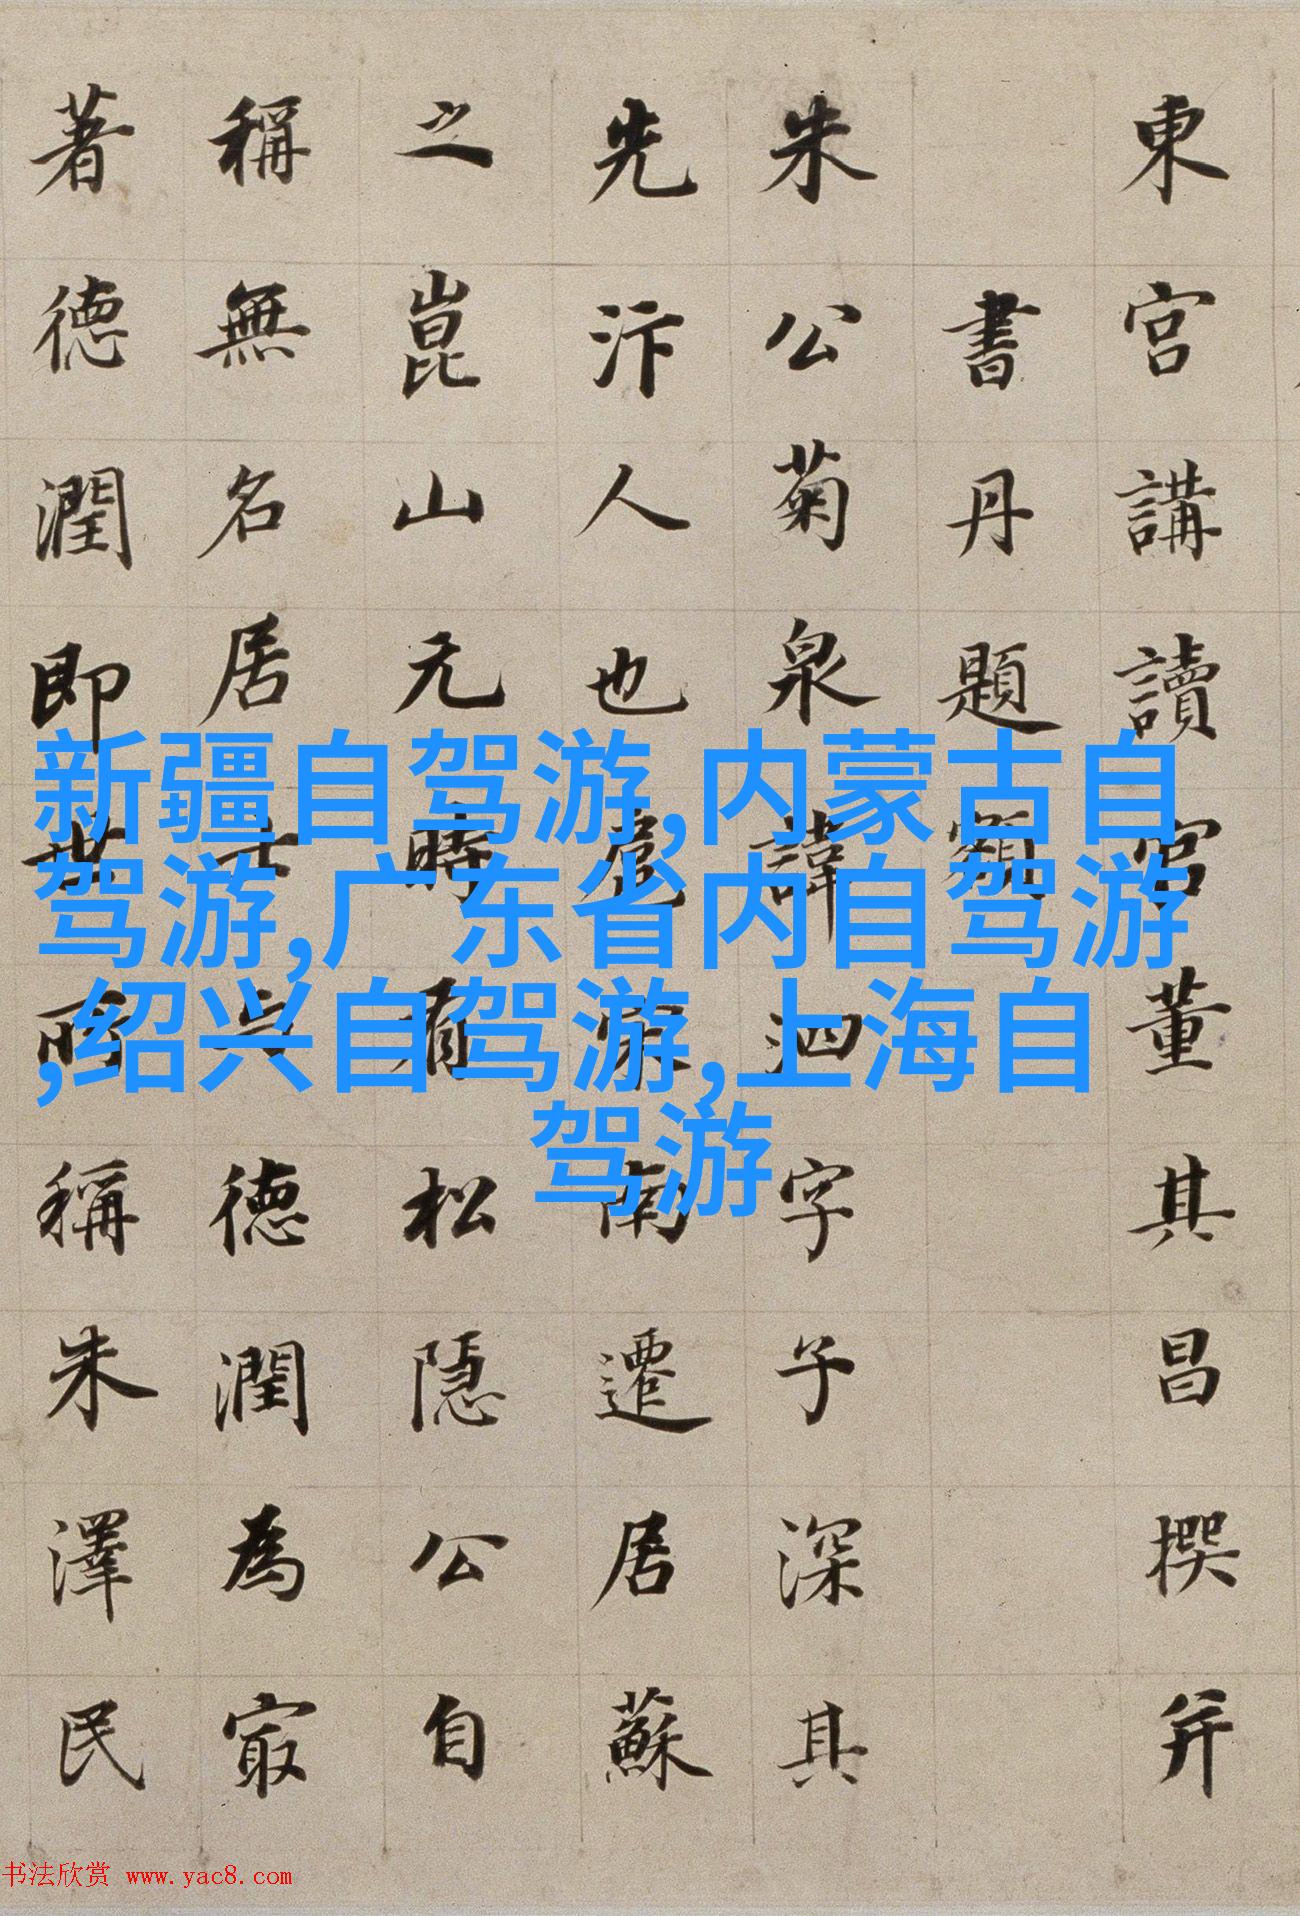 東宮講讀官董其昌撰并
書丹題額
朱公菊泉諱泗字子深其
先汴人也扈宋南遷居蘇
之崑山元時有松隱公自
稱無名居士以德潤為冣
著德潤即世所稱朱澤民
新疆自驾游,内蒙古自
驾游,广东省内自驾游
,绍兴自驾游,上海自
驾游
书法欣赏 www.yac8.com